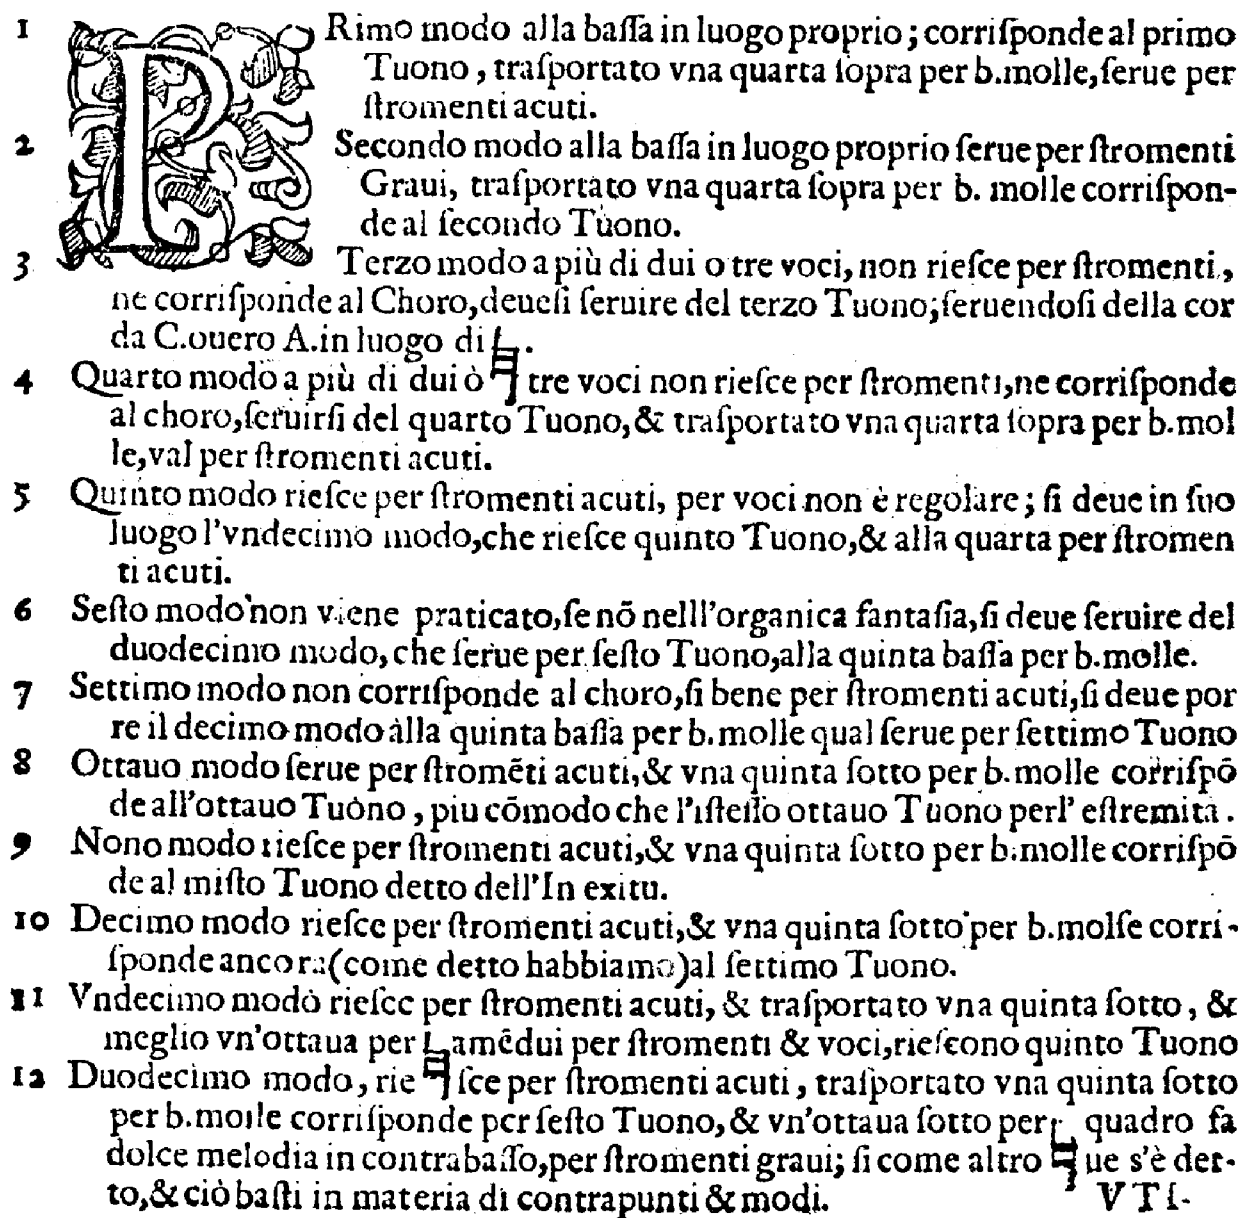 1 PRimo modo alla baſſa in luogo proprio; corriſponde al primo
Tuono, traſportato vna quarta ſopra per b.molle, ſerue per
ſtromenti acuti.
2 Secondo modo alla baſſa in luogo proprio ſerue per ſtromenti
Graui, traſportato vna quarta ſopra per b. molle corriſpon-
de al ſecondo Tuono.
3 Terzo modo a più di dui o tre voci, non rieſce per ſtromenti,
ne corriſponde al Choro, deueſi ſeruire del terzo Tuono; ſeruendoſi della cor
da C.ouero A.in luogo di ♮.
4 Quarto modo a più di dui ò tre voci non rieſce per ſtromenti, ne corriſponde
al choro, ſeruirſi del quarto Tuono, & traſportato vna quarta ſopra per b.mol
le, val per ſtromenti acuti.
5 Quinto modo rieſce per ſtromenti acuti, per voci non è regolare; ſi deue in ſuo
luogo l'vndecimo modo, che rieſce quinto Tuono, & alla quarta per ſtromen
ti acuti.
6 Seſto modo non viene praticato, ſe nõ nelll'organica fantaſia, ſi deue ſeruire del
duodecimo modo, che ſerue per ſeſto Tuono, alla quinta baſſa per b.molle.
7 Settimo modo non corriſponde al choro, ſi bene per ſtromenti acuti, ſi deue por
re il decimo modo alla quinta baſſa per b.molle qual ſerue per ſettimo Tuono
8 Ottauo modo ſerue per ſtromẽti acuti, & vna quinta ſotto per b.molle corriſpõ
de all'ottauo Tuono, piu cõmodo che l'iſteſſo ottauo Tuono perl' eſtremità.
9 Nono modo rieſce per ſtromenti acuti, & vna quinta ſotto per b.molle corriſpõ
de al miſto Tuono detto dell'In exitu.
10 Decimo modo rieſce per ſtromenti acuti, & vna quinta ſotto per b.molſe corri-
ſponde ancora (come detto habbiamo) al ſettimo Tuono.
11 Vndecimo modo rieſce per ſtromenti acuti, & traſportato vna quinta ſotto, &
meglio vn'ottaua per ♮ amẽdui per ſtromenti & voci, rieſcono quinto Tuono
12 Duodecimo modo, rieſce per ſtromenti acuti, traſportato vna quinta ſotto
per b.molle corriſponde per ſeſto Tuono, & vn'ottaua ſotto per ♮ quadro fa
dolce melodia in contrabaſſo, per ſtromenti graui; ſi come altro ue s'è det-
to, & ciò baſti in materia di contrapunti & modi.
VTI-